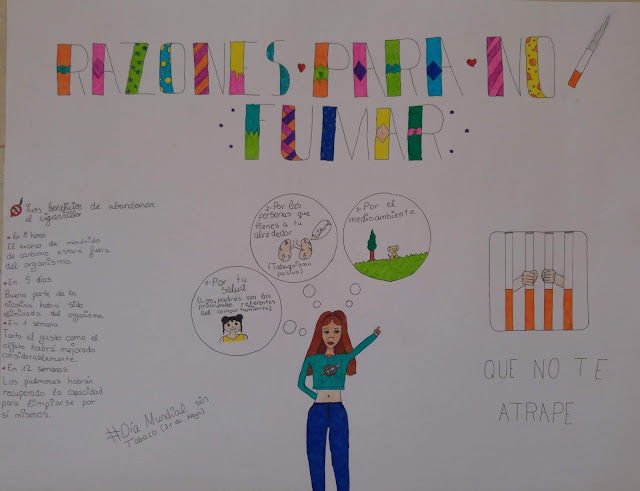 RAZONES PARA NO
FUMAR
Los beneficios de abandonar
el cigarrillo
En 8 horas
El exceso de monóxido
de carbono estará fuera
del organismo.
En 5 días
Buena parte de la
nicotina habrá sido
eliminada del organismo.
En 1 semana
Tanto el gusto como el
olfato habrá mejorado
considerablemente.
En 12 semanas
Los pulmones habrán
recuperado la capacidad
para limpiarse por
sí mismos.
1-Por tu
salud
(Los padres son los
principales referentes
del comportamiento)
2-Por las
personas que
tienes a tu
alrededor
(Tabaquismo
pasivo)
3-Por el
medioambiente
QUE NO TE
ATRAPE
#Día Mundial sin
Tabaco (31 de Mayo)